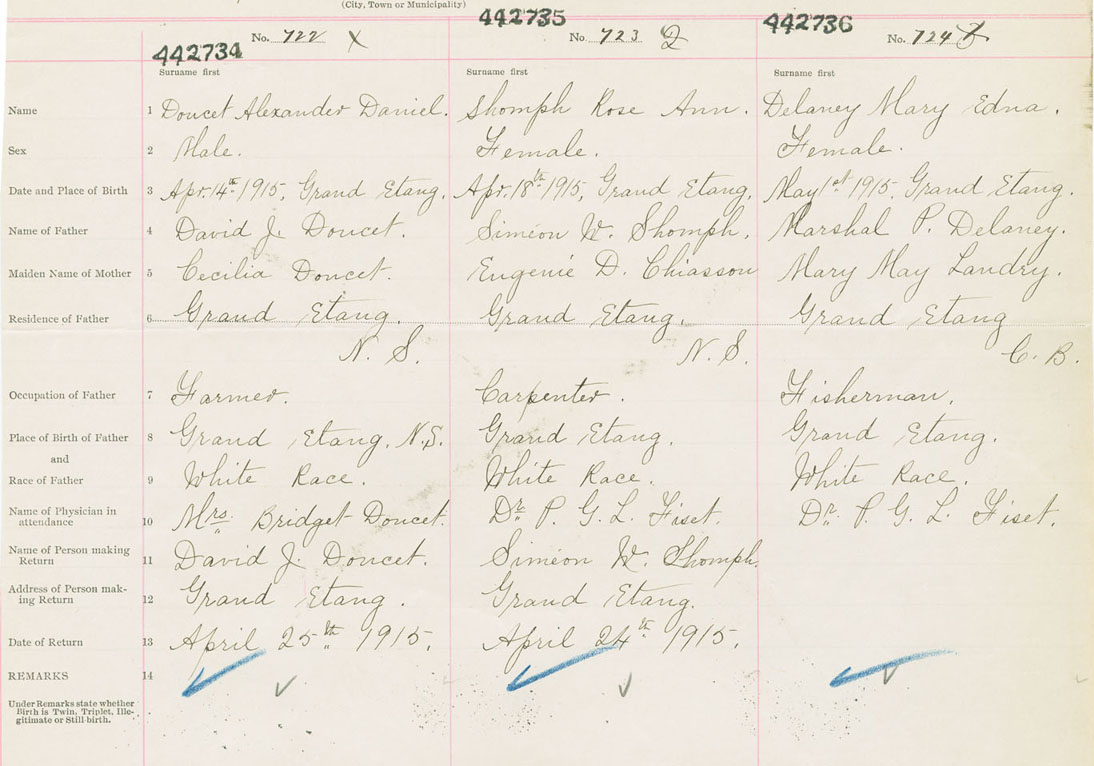 (City, Town or Municipality)
442734 442735 442736
No. 722 X No. 723 2 No. 724
Surname first Surname first Surname first
Name 1 Doucet Alexander Daniel. Shomph Rose Ann. Delaney Mary Edna.
Sex 2 Male. Female. Female.
Date and Place of Birth 3 Apr. 14th 1915, Grand Etang. Apr. 18th 1915, Grand Etang. May 1st 1915. Grand Etang.
Name of Father 4 David J. Doucet. Simeon W. Shomph. Marshal P. Delaney.
Maiden Name of Mother 5 Cecilia Doucet. Eugenie D. Chiasson Mary May Landry.
Residence of Father 6 Grand Etang. Grand Etang. Grand Etang
N. S. N. S. C. B.
Occupation of Father 7 Farmer. Carpenter. Fisherman.
Place of Birth of Father 8 Grand Etang, N.S. Grand Etang. Grand Etang.
and
Race of Father 9 White Race. White Race. White Race.
Name of Physician in
attendance 10 Mrs. Bridget Doucet. Dr. P. G. L. Fiset. Dr. P. G. L. Fiset.
Name of Person making
Return 11 David J. Doucet. Simeon W. Shomph.
Address of Person mak-
ing Return 12 Grand Etang. Grand Etang.
Date of Return 13 April 25th 1915. April 24th 1915.
REMARKS 14
Under Remarks state whether
Birth is Twin, Triplet, Ille-
gitimate or Still-birth.